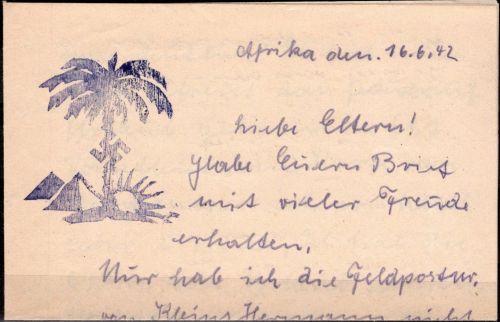 Afrika den. 16.6.42
Liebe Eltern!
Habe Euern Brief
mit vieler Freude
erhalten,
Nur hab ich die Feldpostnr.
von Kleins Hermann nicht